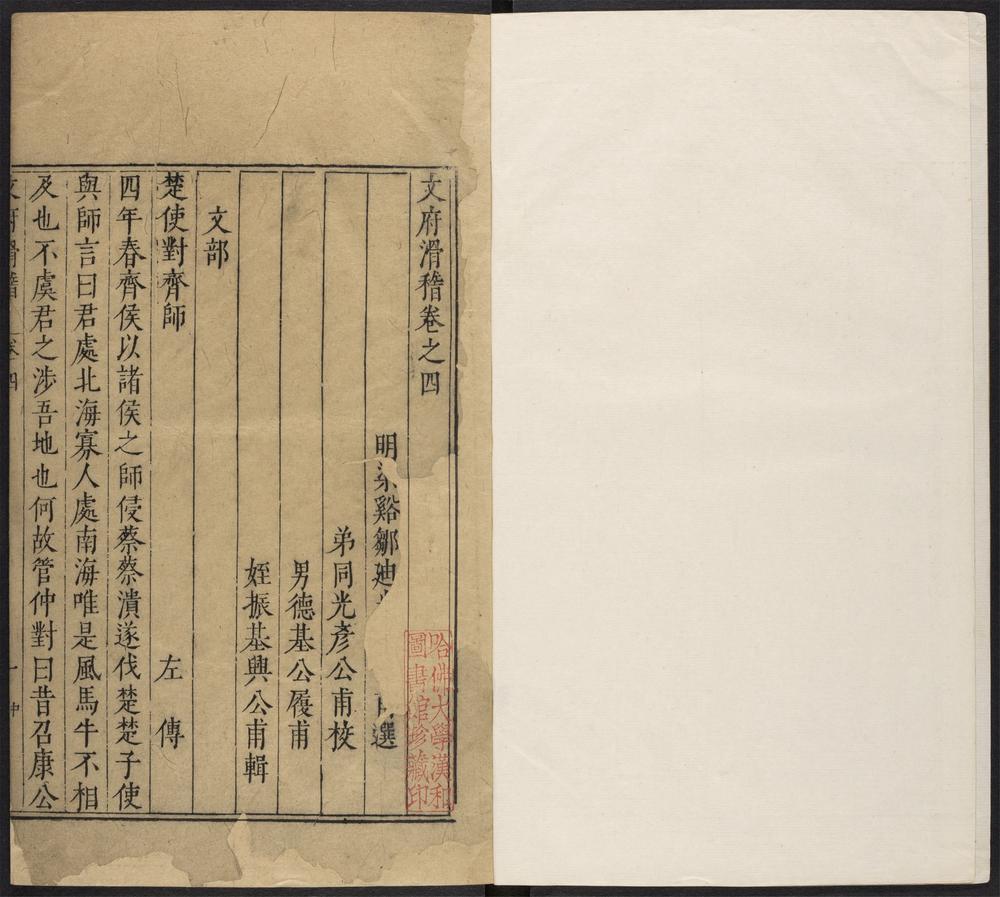 文府滑稽卷之四
明梁谿鄒迪 甫選
弟同光彥公甫校
男德基公履甫
姪振基興公甫輯
文部
楚使對齊師 左傳
四年春齊侯以諸侯之師侵蔡蔡潰遂伐楚楚子使
與師言曰君處北海寡人處南海唯是風馬牛不相
及也不虞君之涉吾地也何故管仲對曰昔召康公
文府滑稽 卷四 一
哈佛大學漢和
圖書館珍藏印